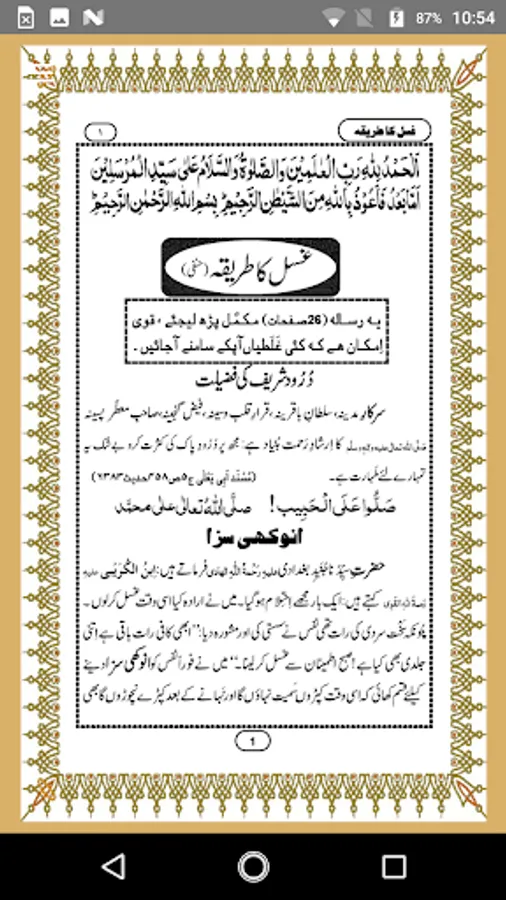 87% 10:54
غسل کا طریقہ
۱
اَلْحَمْدُ لِلّٰهِ رَبِّ الْعٰلَمِیْنَ وَالصَّلٰوةُ وَالسَّلَامُ عَلٰی سَیِّدِ الْمُرْسَلِیْنَ
اَمَّا بَعْدُ فَاَعُوْذُ بِاللّٰهِ مِنَ الشَّیْطٰنِ الرَّجِیْمِ ؕ بِسْمِ اللّٰهِ الرَّحْمٰنِ الرَّحِیْمِ ؕ
غسل کا طریقہ (حنفی)
یہ رسالہ (26صفحات) مکمّل پڑھ لیجئے ، قوی
اِمکان ہے کہ کئی غَلَطیاں آپکے سامنے آجائیں ۔
دُرُود شریف کی فضیلت
سرکارِ مدینہ، سلطانِ باقرینہ، قرارِ قلب و سینہ، فیض گنجینہ، صاحبِ معطّر پسینہ
صَلَّی اللہُ تَعَالٰی عَلَیْہِ وَاٰلِہٖ وَسَلَّم کا اِرشادِ رَحمت بُنیاد ہے: مجھ پر دُرُودِ پاک کی کثرت کرو بے شک یہ
تمہارے لئے طہارت ہے۔ (مُسْنَد اَبِی یَعْلٰی ج۵ص۴۵۸حدیث۶۳۸۳)
صَلُّوْا عَلَی الْحَبِیب! صلَّی اللہُ تعالٰی علٰی محمَّد
انوکھی سزا
حضرتِ سیِّدُنا جُنید بغدادی عَلَیْہِ رَحْمَۃُ اللّٰہِ الْہَادِی فرماتے ہیں: اِبنُ الْکُرَیبی عَلَیْہِ
رَحْمَۃُ اللّٰہِ الْقَوِی کہتے ہیں: ایک بار مجھے اِحتِلام ہوگیا۔ میں نے ارادہ کیا اسی وقت غسل کرلوں۔
چُونکہ سَخت سردی کی رات تھی نفس نے سستی کی اور مشورہ دیا: ’’ابھی کافی رات باقی ہے اتنی
جلدی بھی کیا ہے! صبح اطمینان سے غسل کرلینا۔‘‘ میں نے فوراً نفس کو انوکھی سزا دینے
کیلئے قسم کھائی کہ اسی وقت کپڑوں سَمیت نہاؤں گا اور نہانے کے بعد کپڑے نچوڑوں گا بھی
1